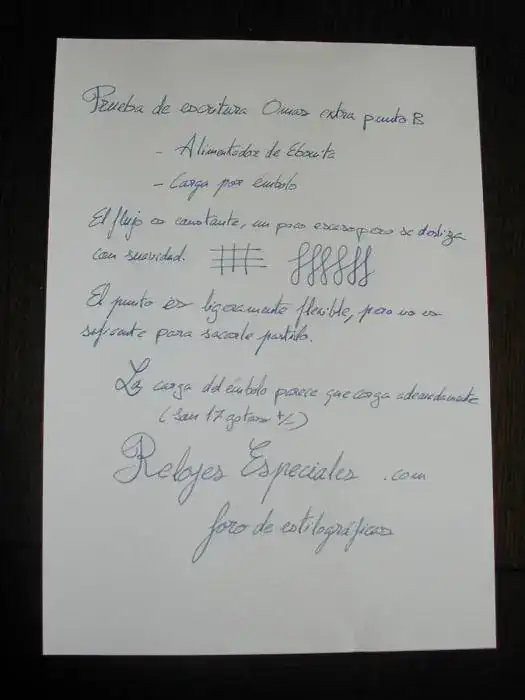 Prueba de escritura Omas extra punto B
- Alimentador de Ebonita
- Carga por émbolo
El flujo es constante, un poco escaso pero se desliza
con suavidad.
El punto es ligeramente flexible, pero no es
suficiente para sacarle partido.
La carga del émbolo parece que carga adecuadamente
(son 17 gotas +/-)
Relojes Especiales .com
foro de estilográficas